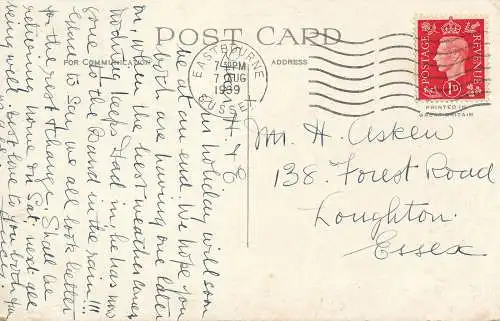 POST CARD
FOR COMMUNICATION
ADDRESS
EASTBOURNE
7 AUG
1939
SUSSEX
POSTAGE
REVENUE
1D
PRINTED IN
GREAT BRITAIN
H & E
This holiday will soon
be at an end. We hope you
both are having one later
on, when the best weather comes
Nothing keeps Dad in, he has now
gone to the Band in the rain!!!
we all look better
for the rest & change. Shall be
returning home on Sat: next all
being well. Best love to you both from
Mr. H. Asken
138. Forest Road
Loughton.
Essex